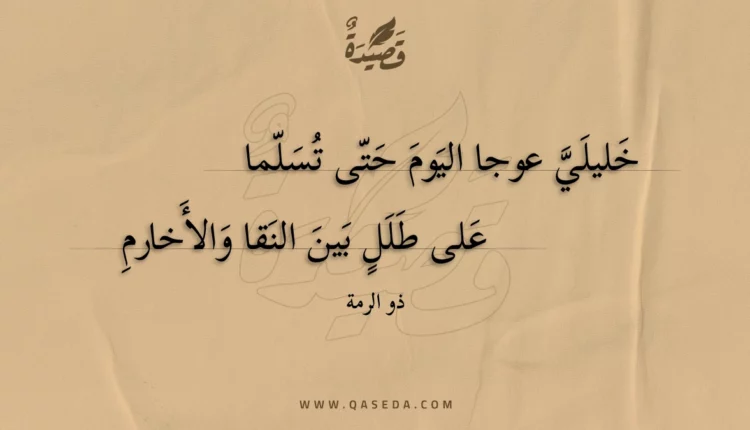 قَصِيدَةٌ
خَليلَيَّ عوجا اليَومَ حَتّى تُسَلّما
عَلى طَلَلٍ بَينَ النَقا وَالأَخارمِ
ذو الرمة
WWW.QASEDA.COM